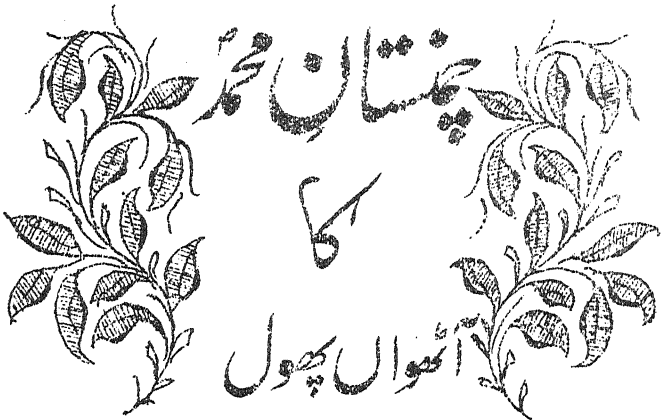 چمنستانِ محمدؐ
کا
آٹھواں پھول